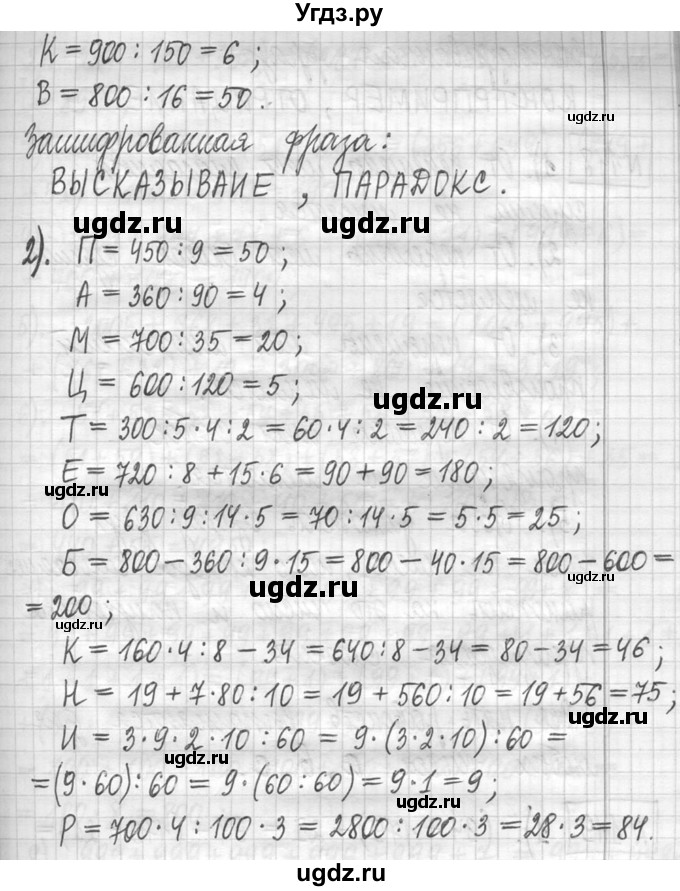 Угдз.ру
К = 900 : 150 = 6 ;
В = 800 : 16 = 50 .
ugdz.ru
Зашифрованная фраза:
ugdz.ru
ВЫСКАЗЫВАИЕ , ПАРАДОКС .
ugdz.ru
ugdz.ru
2). П = 450 : 9 = 50 ;
А = 360 : 90 = 4 ;
М = 700 : 35 = 20 ;
ugdz.ru
Ц = 600 : 120 = 5 ;
ugdz.ru
Т = 300 : 5 · 4 : 2 = 60 · 4 : 2 = 240 : 2 = 120 ;
Е = 720 : 8 + 15 · 6 = 90 + 90 = 180 ;
ugdz.ru
О = 630 : 9 : 14 · 5 = 70 : 14 · 5 = 5 · 5 = 25 ;
Б = 800 – 360 : 9 · 15 = 800 – 40 · 15 = 800 – 600 =
ugdz.ru
ugdz.ru
= 200 ;
ugdz.ru
К = 160 · 4 : 8 – 34 = 640 : 8 – 34 = 80 – 34 = 46 ;
Н = 19 + 7 · 80 : 10 = 19 + 560 : 10 = 19 + 56 = 75 ;
ugdz.ru
И = 3 · 9 · 2 · 10 : 60 = 9 · (3 · 2 · 10) : 60 =
ugdz.ru
= (9 · 60) : 60 = 9 · (60 : 60) = 9 · 1 = 9 ;
ugdz.ru
Р = 700 · 4 : 100 · 3 = 2800 : 100 · 3 = 28 · 3 = 84 .
ugdz.ru